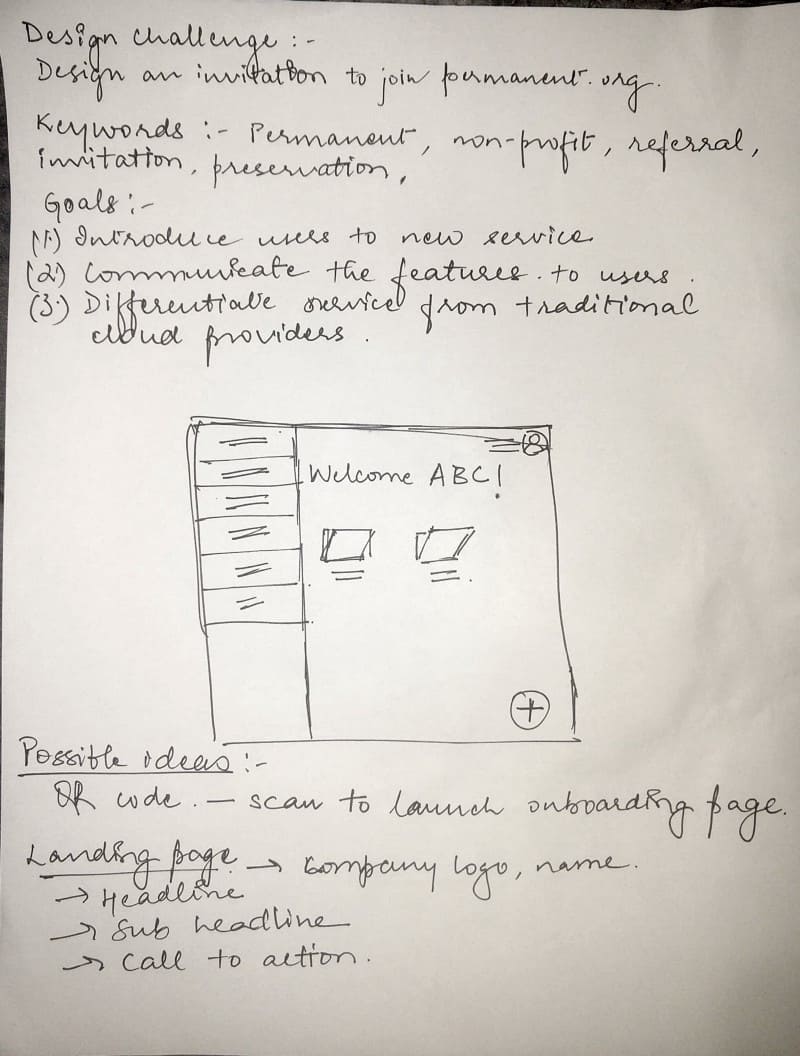 Design challenge :-
Design an invitation to join permanent.org.
Keywords :- Permanent, non-profit, referral,
invitation, preservation,
Goals :-
(1) Introduce users to new service
(2) Communicate the features to users.
(3) Differentiate service from traditional
cloud providers.
Welcome ABC!
Possible ideas :-
QR code. — scan to launch onboarding page.
Landing page → Company logo, name.
→ Headline
→ Sub headline
→ Call to action.